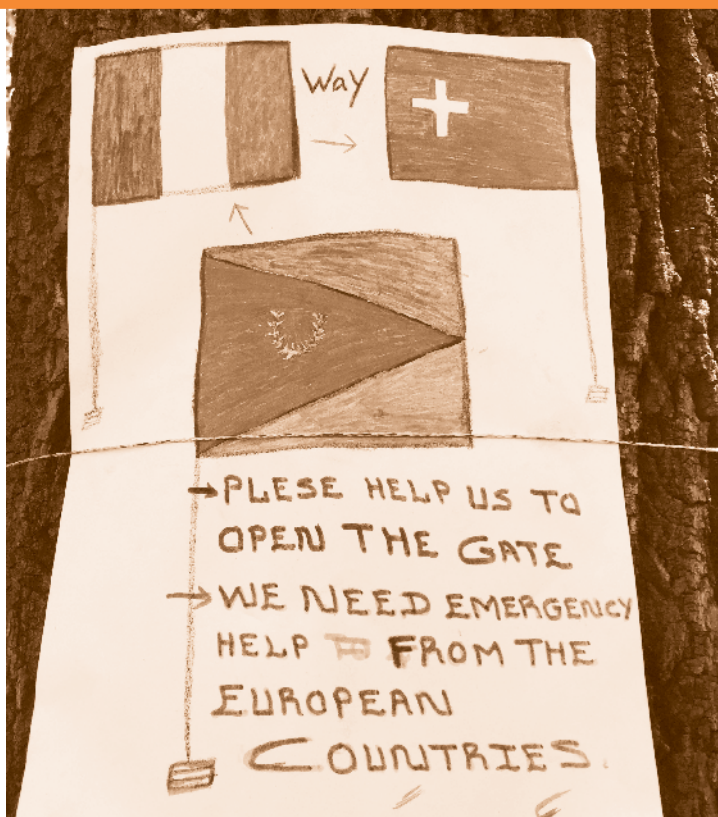 Way
→PLESE HELP US TO
OPEN THE GATE
→WE NEED EMERGENCY
HELP FROM THE
EUROPEAN
COUNTRIES.